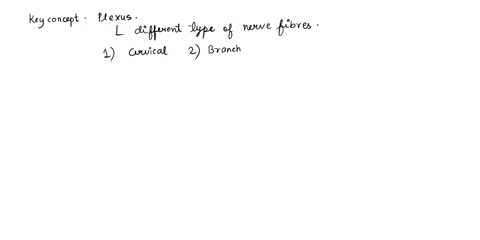 Key concept - Plexus.
L different type of nerve fibres.
1) Cervical 2) Branch